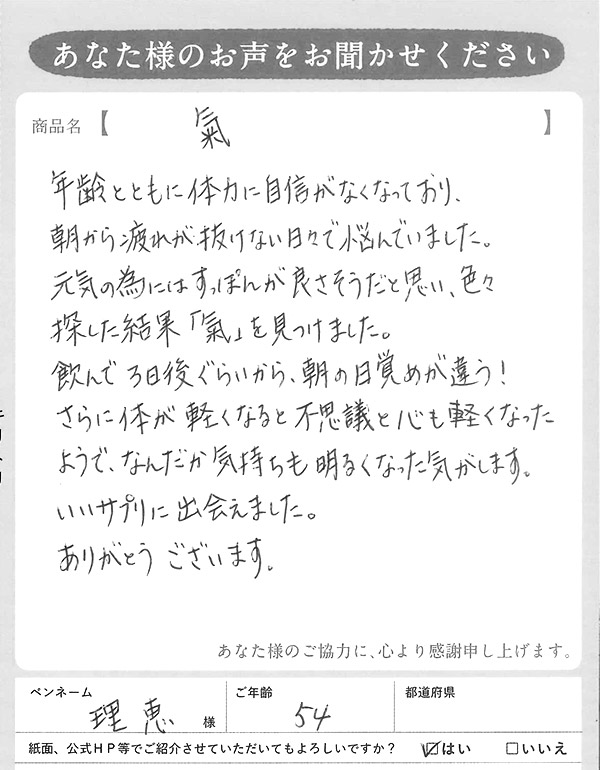 あなた様のお声をお聞かせください
商品名【 氣 】
年齢とともに体力に自信がなくなっており、
朝から疲れが抜けない日々で悩んでいました。
元気の為にはすっぽんが良さそうだと思い、色々
探した結果「氣」を見つけました。
飲んで3日後ぐらいから、朝の目覚めが違う!
さらに体が軽くなると不思議と心も軽くなった
ようで、なんだか気持ちも明るくなった気がします。
いいサプリに出会えました。
ありがとうございます。
あなた様のご協力に、心より感謝申し上げます。
ペンネーム ご年齢 都道府県
理恵 様 54
紙面、公式HP等でご紹介させていただいてもよろしいですか? ☑はい □いいえ